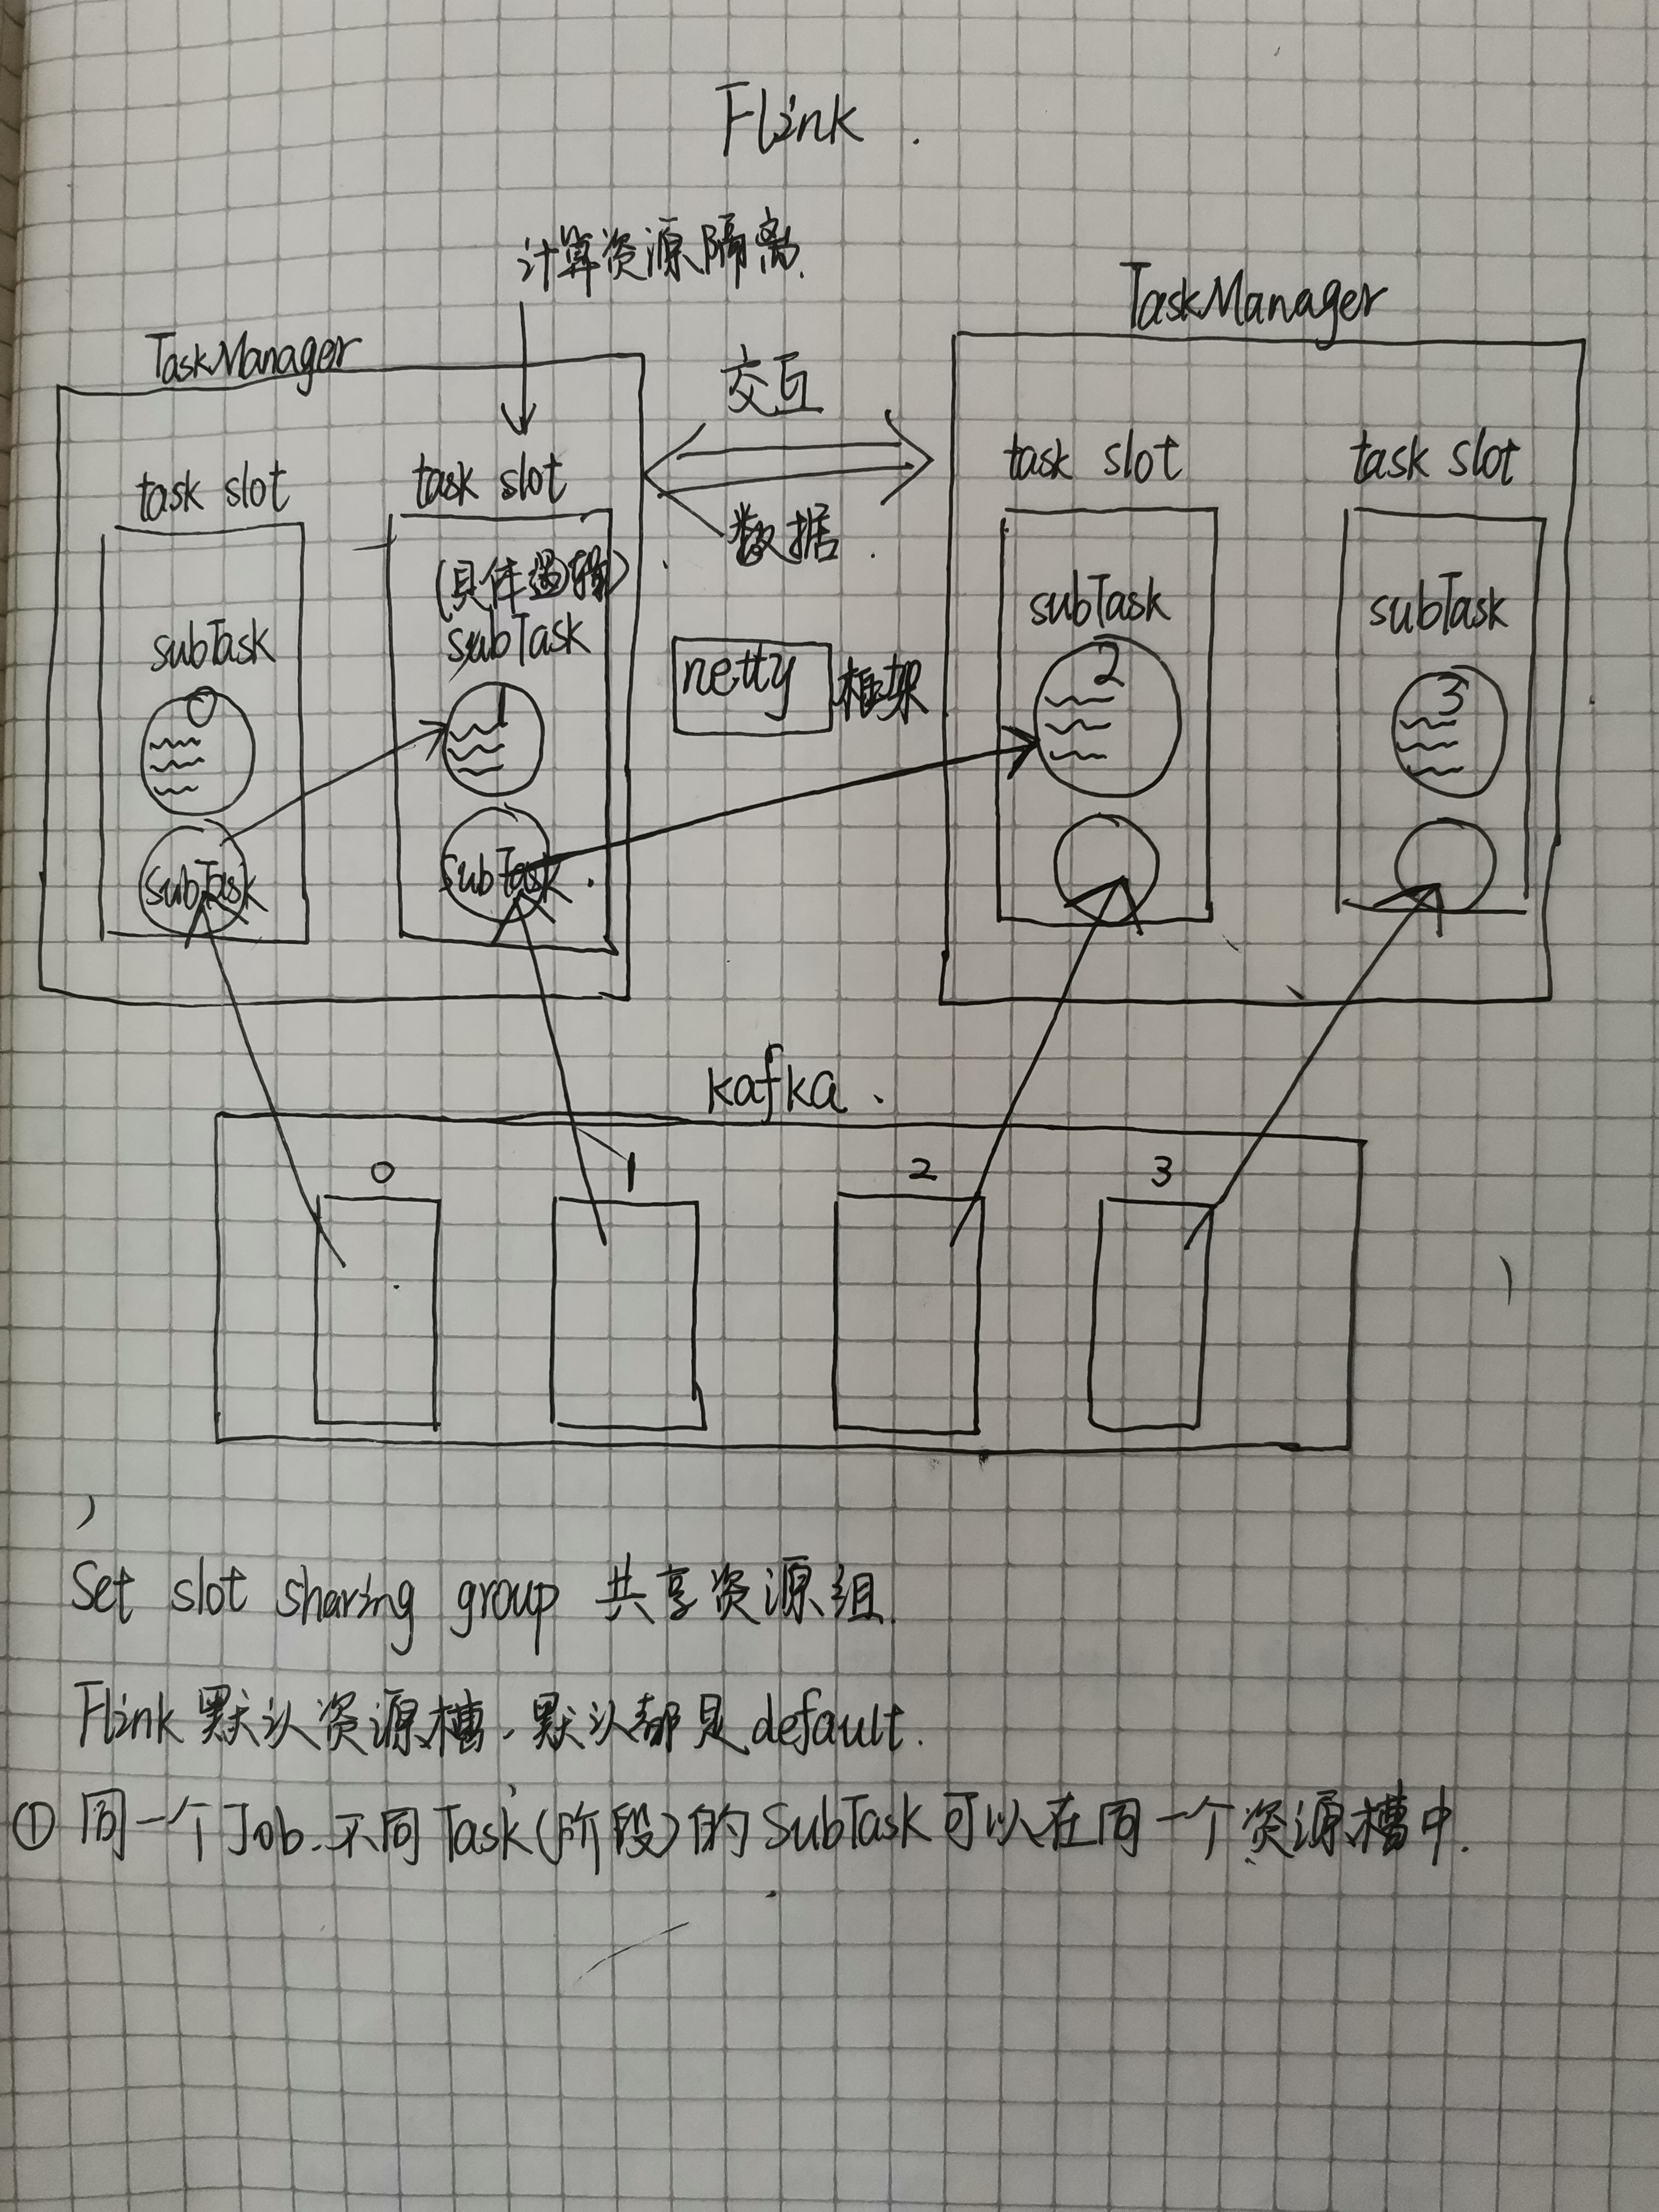 Flink.
计算资源隔离.
TaskManager
TaskManager
交互
数据.
task slot
task slot
task slot
task slot
(具体逻辑)
subTask
subTask
subTask
subTask
0
1
2
3
netty 框架
SubTask
SubTask.
kafka.
0
1
2
3
Set slot sharing group 共享资源组.
Flink 默认资源槽, 默认都是 default.
① 同一个Job、不同Task(阶段)的SubTask可以在同一个资源槽中.